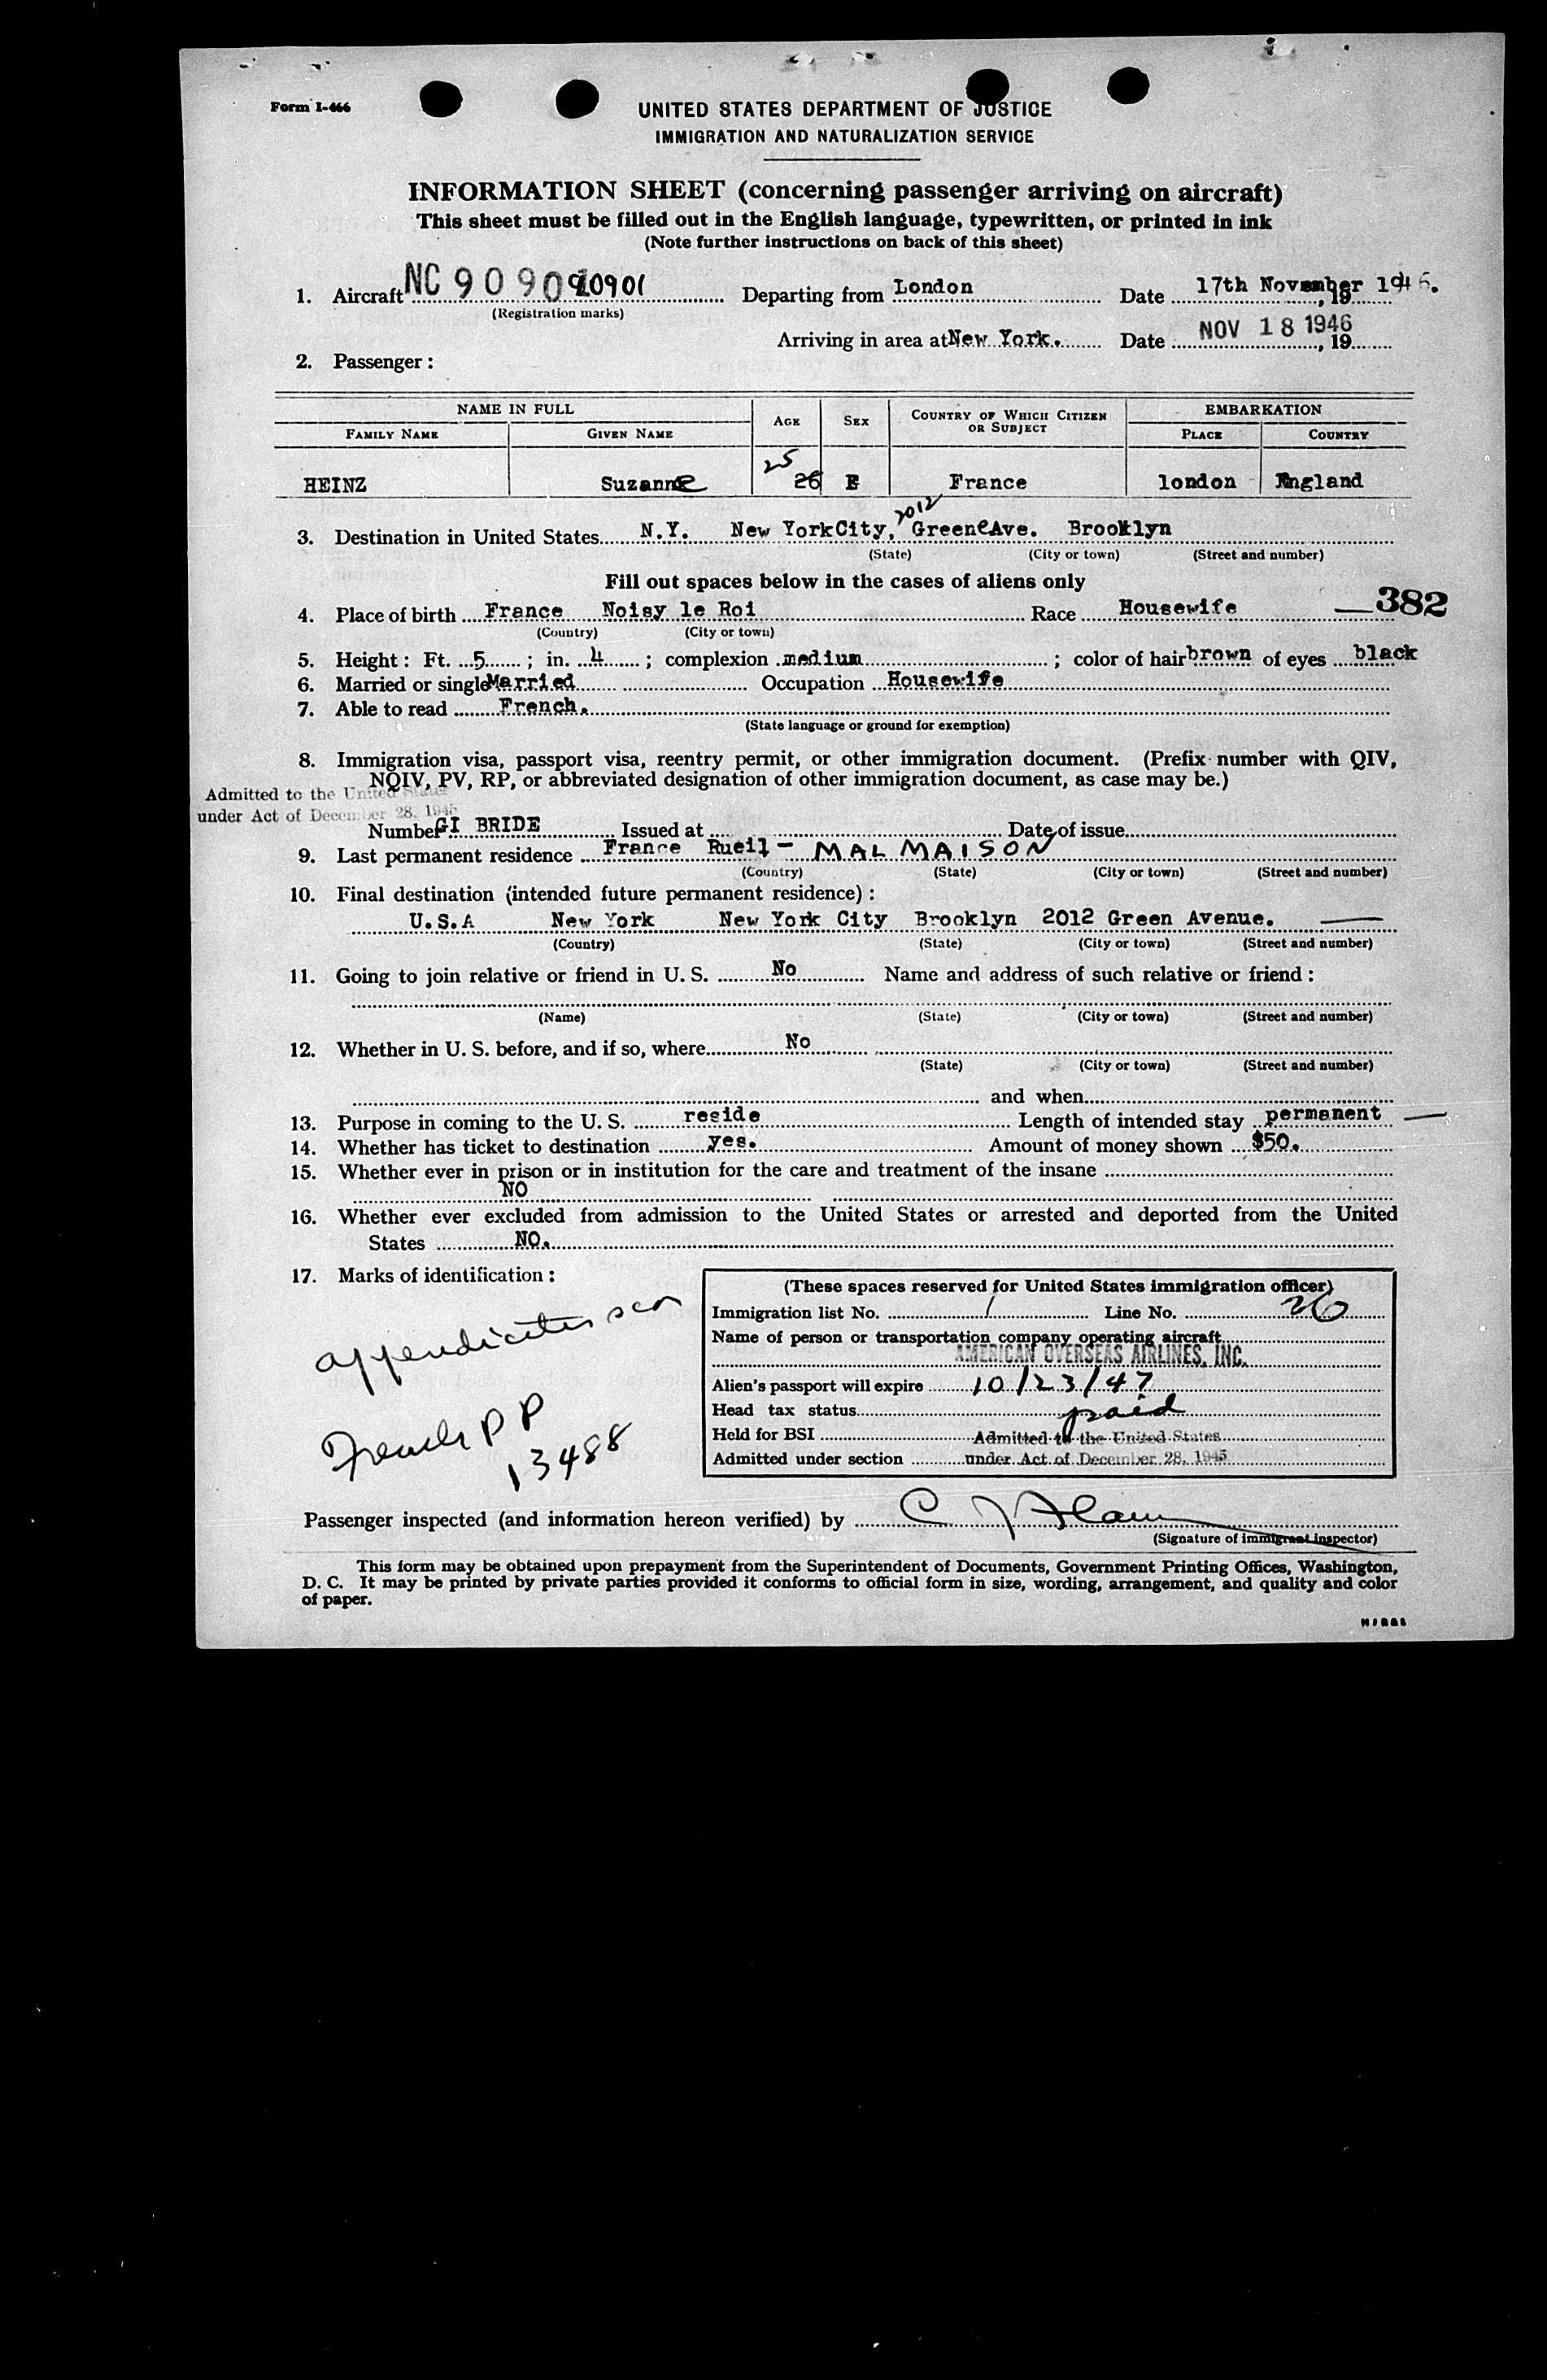 Form I-466
UNITED STATES DEPARTMENT OF JUSTICE
IMMIGRATION AND NATURALIZATION SERVICE
INFORMATION SHEET (concerning passenger arriving on aircraft)
This sheet must be filled out in the English language, typewritten, or printed in ink
(Note further instructions on back of this sheet)
1. Aircraft NC 9 0 9 0 90901 Departing from London Date 17th November 1946.
(Registration marks)
Arriving in area at New York. Date NOV 18 1946, 19
2. Passenger :
NAME IN FULL AGE SEX COUNTRY OF WHICH CITIZEN OR SUBJECT EMBARKATION
FAMILY NAME GIVEN NAME PLACE COUNTRY
25
HEINZ Suzanne 26 F France london England
2012
3. Destination in United States N.Y. New YorkCity, GreeneAve. Brooklyn
(State) (City or town) (Street and number)
Fill out spaces below in the cases of aliens only
4. Place of birth France Noisy le Roi Race Housewife —382
(Country) (City or town)
5. Height : Ft. 5 ; in. 4 ; complexion medium ; color of hair brown of eyes black
6. Married or single Married Occupation Housewife
7. Able to read French.
(State language or ground for exemption)
8. Immigration visa, passport visa, reentry permit, or other immigration document. (Prefix number with QIV,
NQIV, PV, RP, or abbreviated designation of other immigration document, as case may be.)
Admitted to the United States
under Act of December 28, 1945
Number GI BRIDE Issued at Date of issue
9. Last permanent residence France Rueil - MALMAISON
(Country) (State) (City or town) (Street and number)
10. Final destination (intended future permanent residence) :
U.S.A New York New York City Brooklyn 2012 Green Avenue. —
(Country) (State) (City or town) (Street and number)
11. Going to join relative or friend in U. S. No Name and address of such relative or friend :
(Name) (State) (City or town) (Street and number)
12. Whether in U. S. before, and if so, where No
(State) (City or town) (Street and number)
and when
13. Purpose in coming to the U. S. reside Length of intended stay permanent —
14. Whether has ticket to destination yes. Amount of money shown $50.
15. Whether ever in prison or in institution for the care and treatment of the insane
NO
16. Whether ever excluded from admission to the United States or arrested and deported from the United
States NO.
17. Marks of identification :
appendicites scar
French PP
13488
(These spaces reserved for United States immigration officer)
Immigration list No. 1 Line No. 26
Name of person or transportation company operating aircraft
AMERICAN OVERSEAS AIRLINES, INC.
Alien's passport will expire 10/23/47
Head tax status paid
Held for BSI Admitted to the United States
Admitted under section under Act of December 28, 1945
Passenger inspected (and information hereon verified) by
(Signature of immigrant inspector)
This form may be obtained upon prepayment from the Superintendent of Documents, Government Printing Offices, Washington,
D. C. It may be printed by private parties provided it conforms to official form in size, wording, arrangement, and quality and color
of paper.